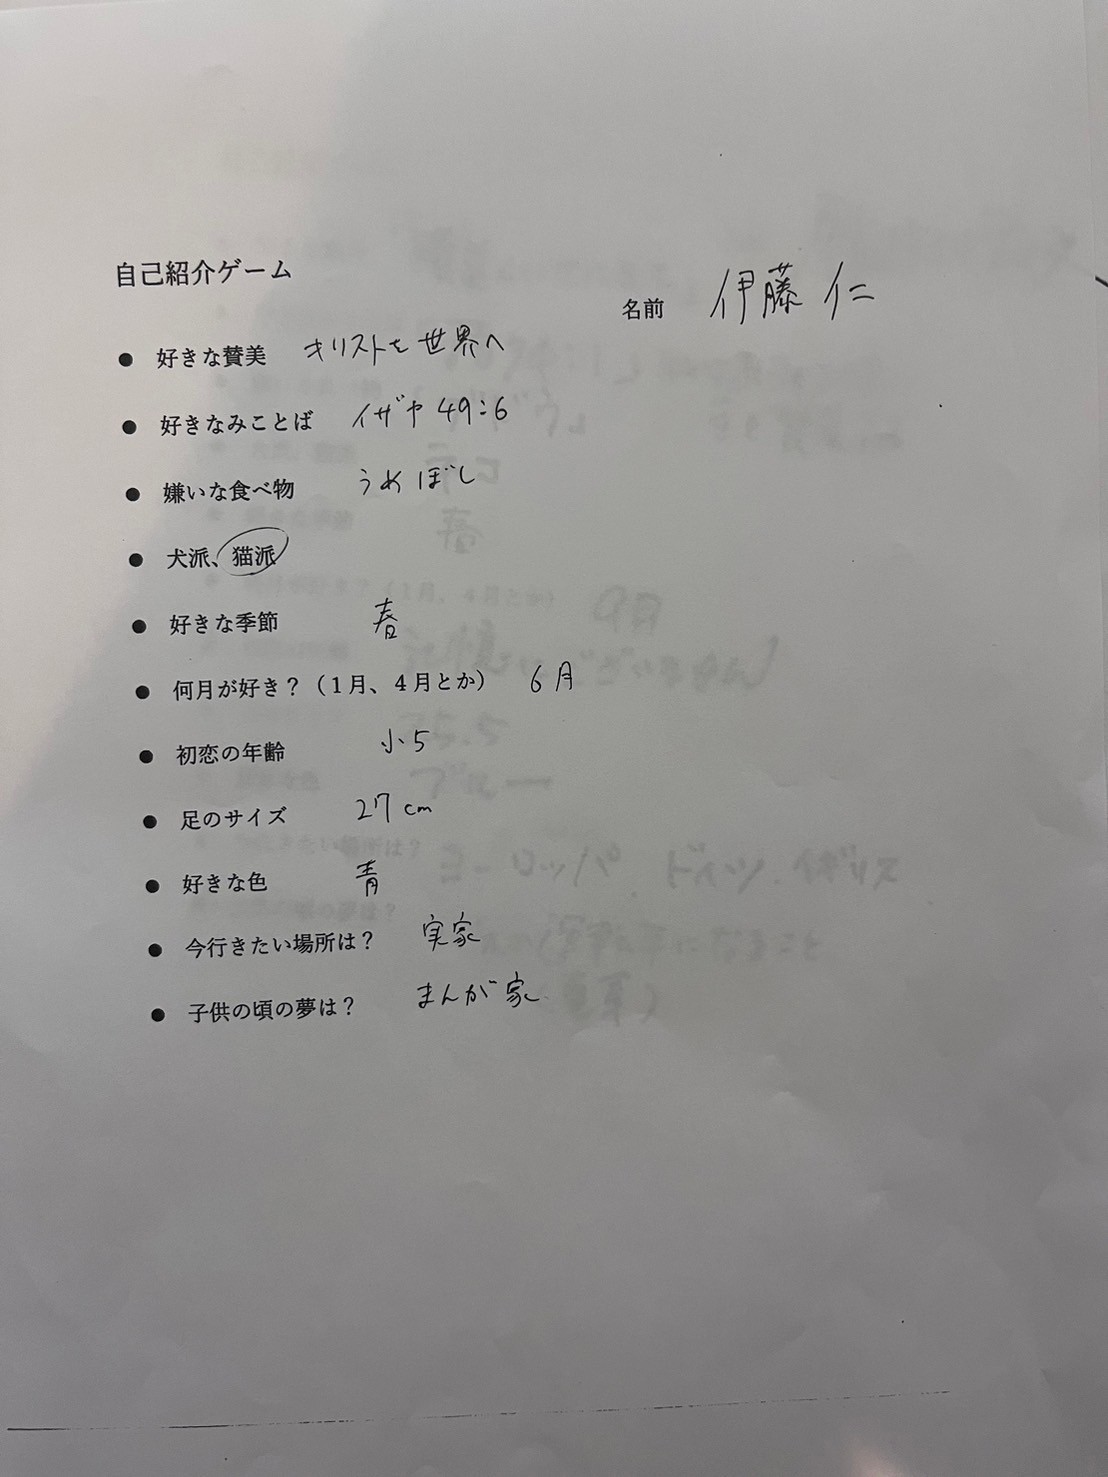 自己紹介ゲーム
名前 伊藤 仁
● 好きな賛美 キリストを世界へ
● 好きなみことば イザヤ 49:6
● 嫌いな食べ物 うめぼし
● 犬派、猫派
● 好きな季節 春
● 何月が好き？（１月、４月とか） 6月
● 初恋の年齢 小5
● 足のサイズ 27cm
● 好きな色 青
● 今行きたい場所は？ 実家
● 子供の頃の夢は？ まんが家